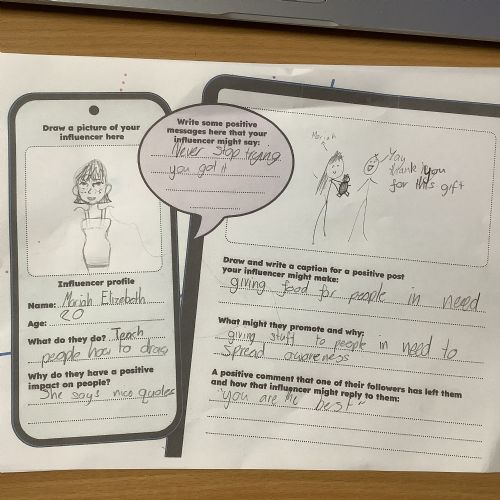 Draw a picture of your
influencer here
Influencer profile
Name: Mariah Elizebath
Age: 20
What do they do? Teach
people how to draw
Why do they have a positive
impact on people?
She says nice quotes
Write some positive
messages here that your
influencer might say:
Never stop trying
you got it
Mariah
thank you
for this gift
Draw and write a caption for a positive post
your influencer might make:
giving food for people in need
What might they promote and why:
giving stuff to people in need to
spread awareness
A positive comment that one of their followers has left them
and how that influencer might reply to them:
"you are the best"